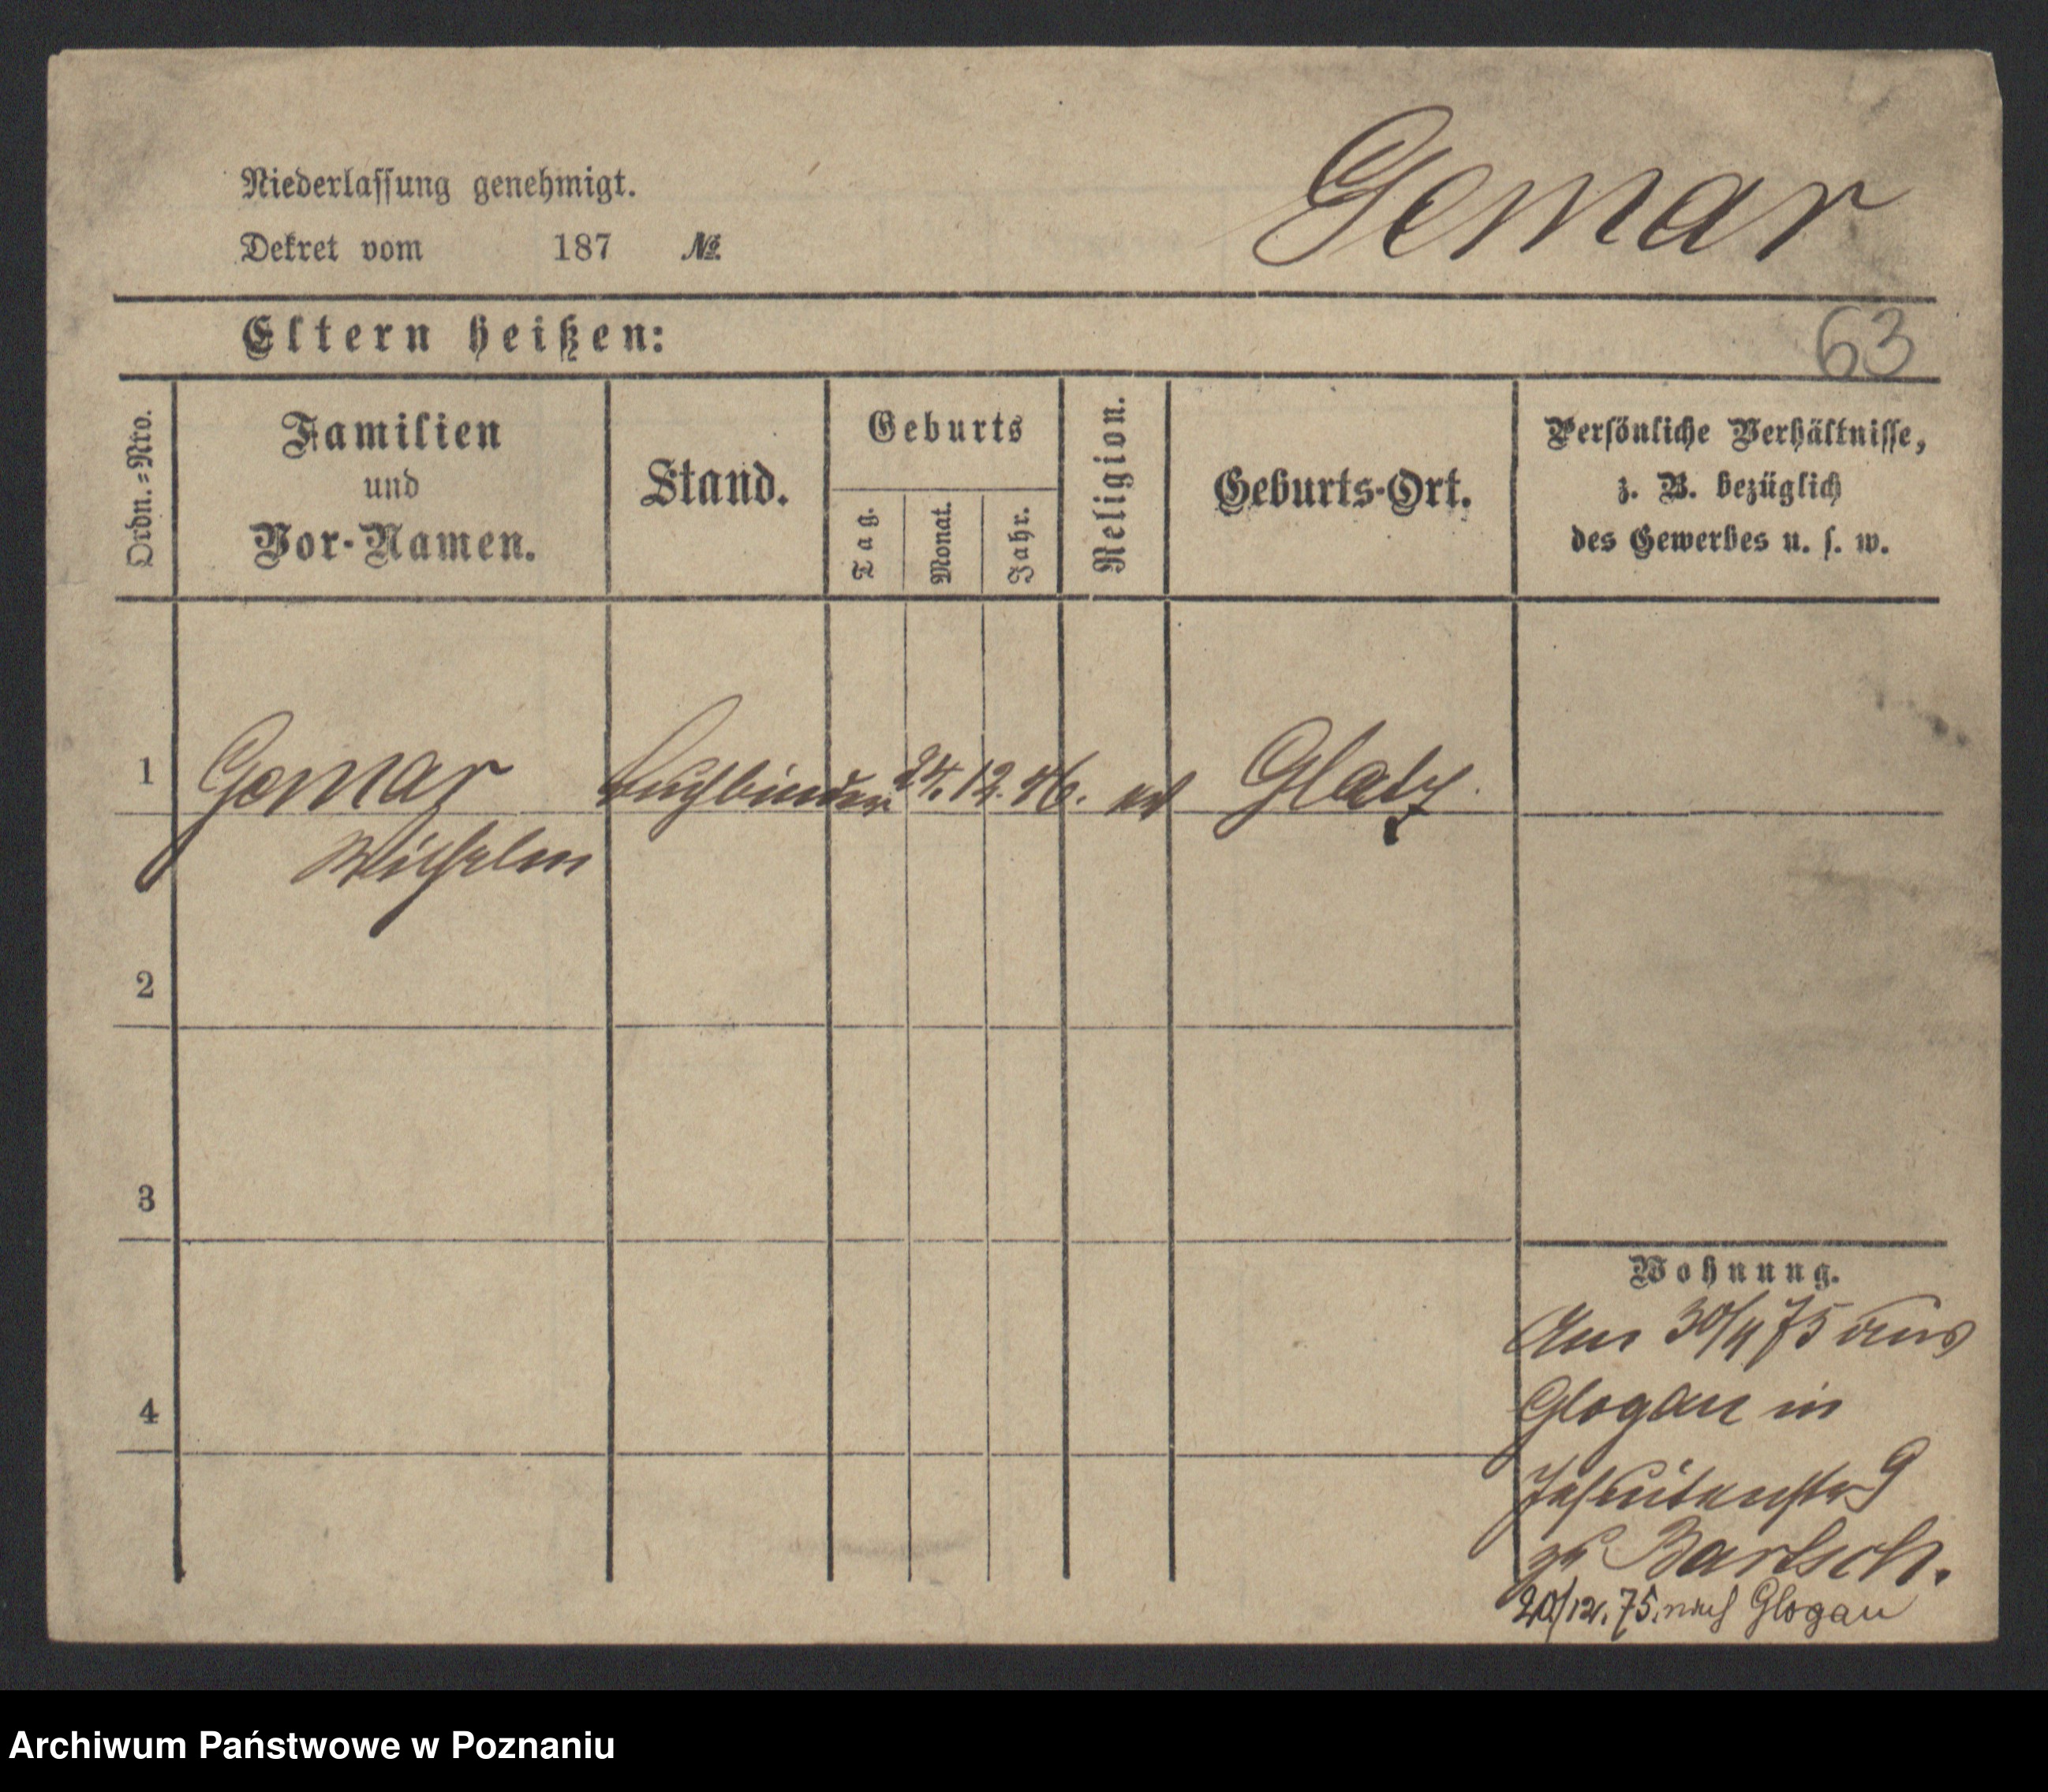 Niederlassung genehmigt.
Dekret vom 187 №
Gemar
Eltern heißen:
63
Ordn.-Nro.
Familien
und
Vor-Namen.
Stand.
Geburts
Tag.
Monat.
Jahr.
Religion.
Geburts-Ort.
Persönliche Verhältnisse,
z. B. bezüglich
des Gewerbes u. s. w.
1
Gemar Buchbinder 24. 12. 46. Glatz.
Wilhelm
2
3
4
Wohnung.
Am 30/11 75 aus
Glogau in
Jesuitenstr 9
zu Bartsch.
20/12. 75. nach Glogau
Archiwum Państwowe w Poznaniu